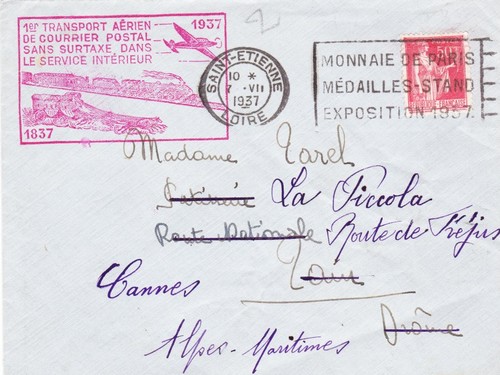 1er TRANSPORT AÉRIEN
DE COURRIER POSTAL
SANS SURTAXE, DANS
LE SERVICE INTÉRIEUR
1937
1837
SAINT-ETIENNE
10 *
7 · VII
1937
LOIRE
MONNAIE DE PARIS
MÉDAILLES-STAND
EXPOSITION 1937.
50c
Madame Tarel
La Piccola
Route Nationale Route de Fréjus
Tain
Cannes
Drôme
Alpes-Maritimes